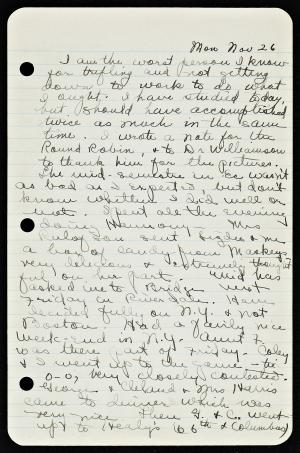 Mon Nov 26
I am the worst person I know
for trifling and not getting
down to work to do what
I ought. I have studied today,
but should have accomplished
twice as much in the same
time. I wrote a note for the
Round Robin, & to Dr Williamson
to thank him for the pictures.
The mid-semester in Ec wasn't
as bad as I expected, but don't
know whether I did well or
not. I spent all the evening
doing Harmony. Mrs
sent & me
a box of candy from Mackeys
very delicious & extremely thought
ful on her part. was
asked me to Bridge next
Friday in Riverdale. Have
decided fully on N.Y. & not
Boston. Had a really nice
week-end in N.Y. Aunt F
was there part of Friday. Coley
& I went up to the game - tie
0-0, very closely contested.
George & Cleland & Mrs Harris
came to dinner which was
very nice. Then G. & C. went
up to Healy's (66th & Columbus)